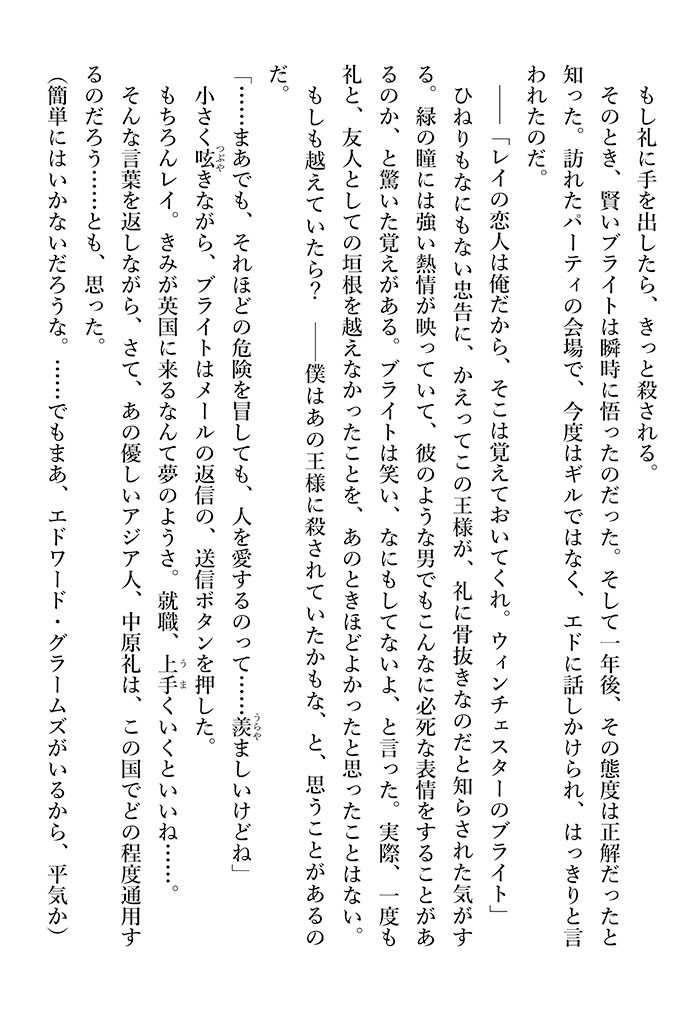 もし礼に手を出したら、きっと殺される。
そのとき、賢いブライトは瞬時に悟ったのだった。そして一年後、その態度は正解だったと
知った。訪れたパーティの会場で、今度はギルではなく、エドに話しかけられ、はっきりと言
われたのだ。
――「レイの恋人は俺だから、そこは覚えておいてくれ。ウィンチェスターのブライト」
ひねりもなにもない忠告に、かえってこの王様が、礼に骨抜きなのだと知らされた気がす
る。緑の瞳には強い熱情が映っていて、彼のような男でもこんなに必死な表情をすることがあ
るのか、と驚いた覚えがある。ブライトは笑い、なにもしてないよ、と言った。実際、一度も
礼と、友人としての垣根を越えなかったことを、あのときほどよかったと思ったことはない。
もしも越えていたら？　――僕はあの王様に殺されていたかもな、と、思うことがあるの
だ。
「……まあでも、それほどの危険を冒しても、人を愛するのって……羨うらやましいけどね」
小さく呟つぶやきながら、ブライトはメールの返信の、送信ボタンを押した。
もちろんレイ。きみが英国に来るなんて夢のようさ。就職、上手うまくいくといいね……。
そんな言葉を返しながら、さて、あの優しいアジア人、中原礼は、この国でどの程度通用す
るのだろう……とも、思った。
（簡単にはいかないだろうな。……でもまあ、エドワード・グラームズがいるから、平気か）